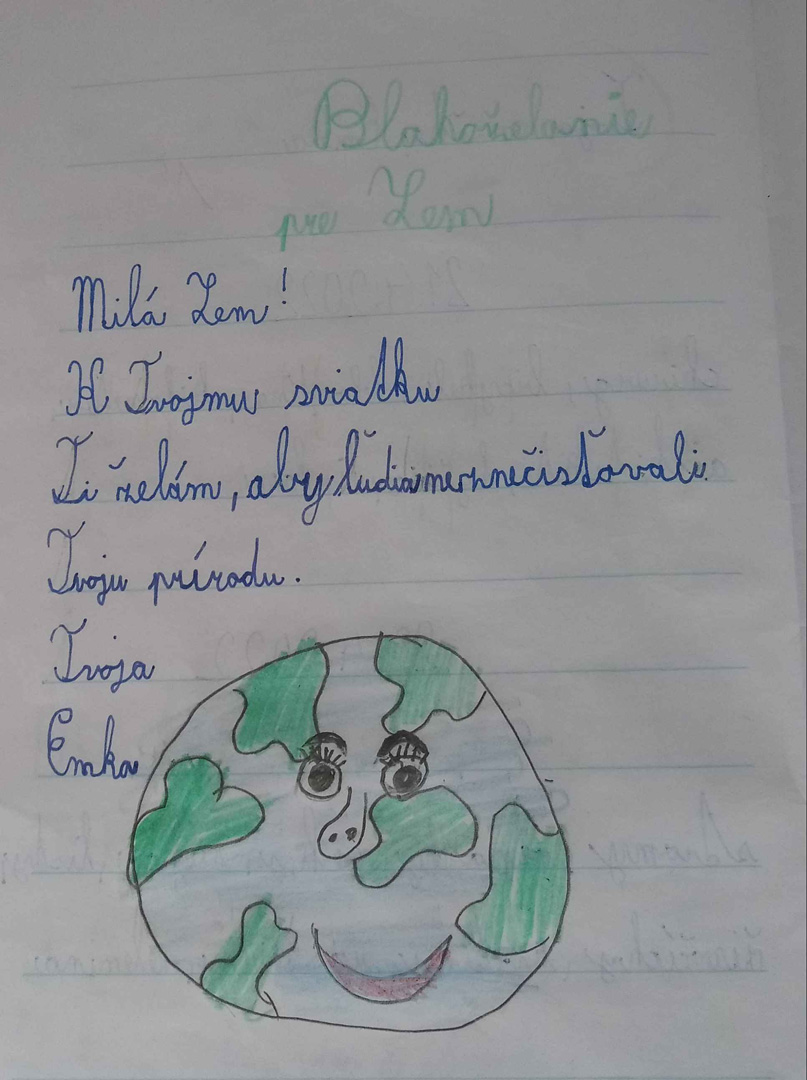 Blahoželanie
pre Zem
Milá Zem!
K Tvojmu sviatku
Ti želám, aby ľudia neznečisťovali
Tvoju prírodu.
Tvoja
Emka